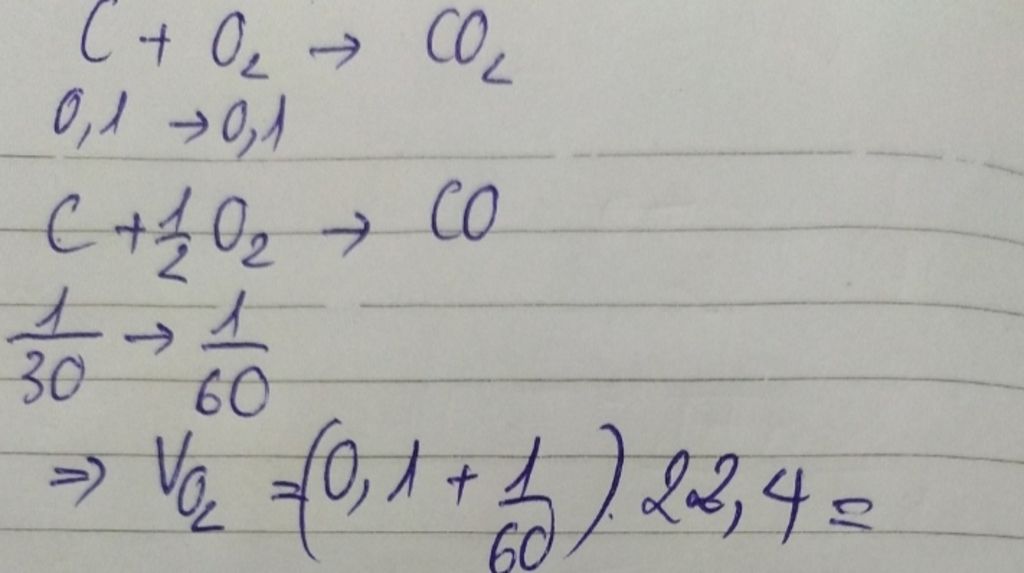 C + O₂ → CO₂
0,1 → 0,1
C + 1/2 O₂ → CO
1/30 → 1/60
⇒ V_O₂ = (0,1 + 1/60) . 22,4 =